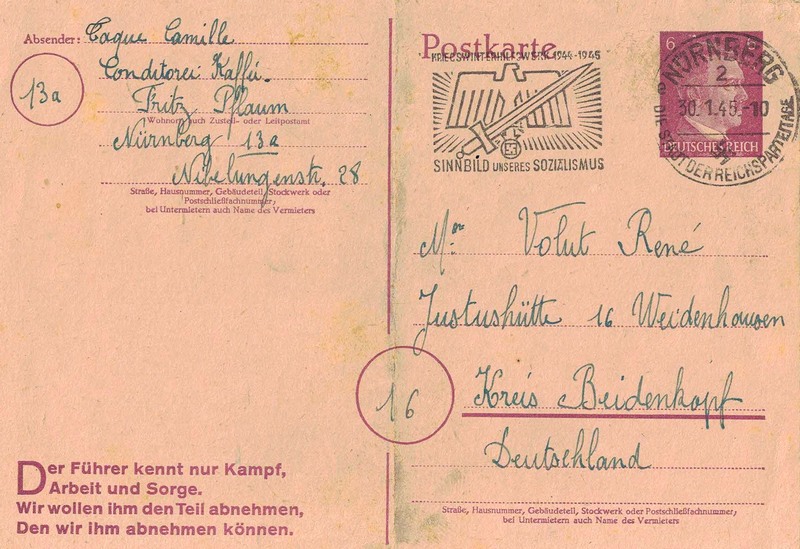 Absender: Caque Camille
Conditorei Kaffée.
Fritz Pflaum
Wohnort, auch Zustell- oder Leitpostamt
13a
Nürnberg 13a
Nibelungenstr. 28
Straße, Hausnummer, Gebäudeteil, Stockwerk oder
Postschließfachnummer,
bei Untermietern auch Name des Vermieters
Postkarte
KRIEGSWINTERHILFSWERK 1944-1945
SINNBILD UNSERES SOZIALISMUS
6
DEUTSCHES REICH
NÜRNBERG
2
30.1.45.-10
DIE STADT DER REICHSPARTEITAGE
Mr Volut René
Justushütte 16 Weidenhausen
16
Kreis Beidenkopf
Deutschland
Straße, Hausnummer, Gebäudeteil, Stockwerk oder Postschließfachnummer,
bei Untermietern auch Name des Vermieters
Der Führer kennt nur Kampf,
Arbeit und Sorge.
Wir wollen ihm den Teil abnehmen,
Den wir ihm abnehmen können.